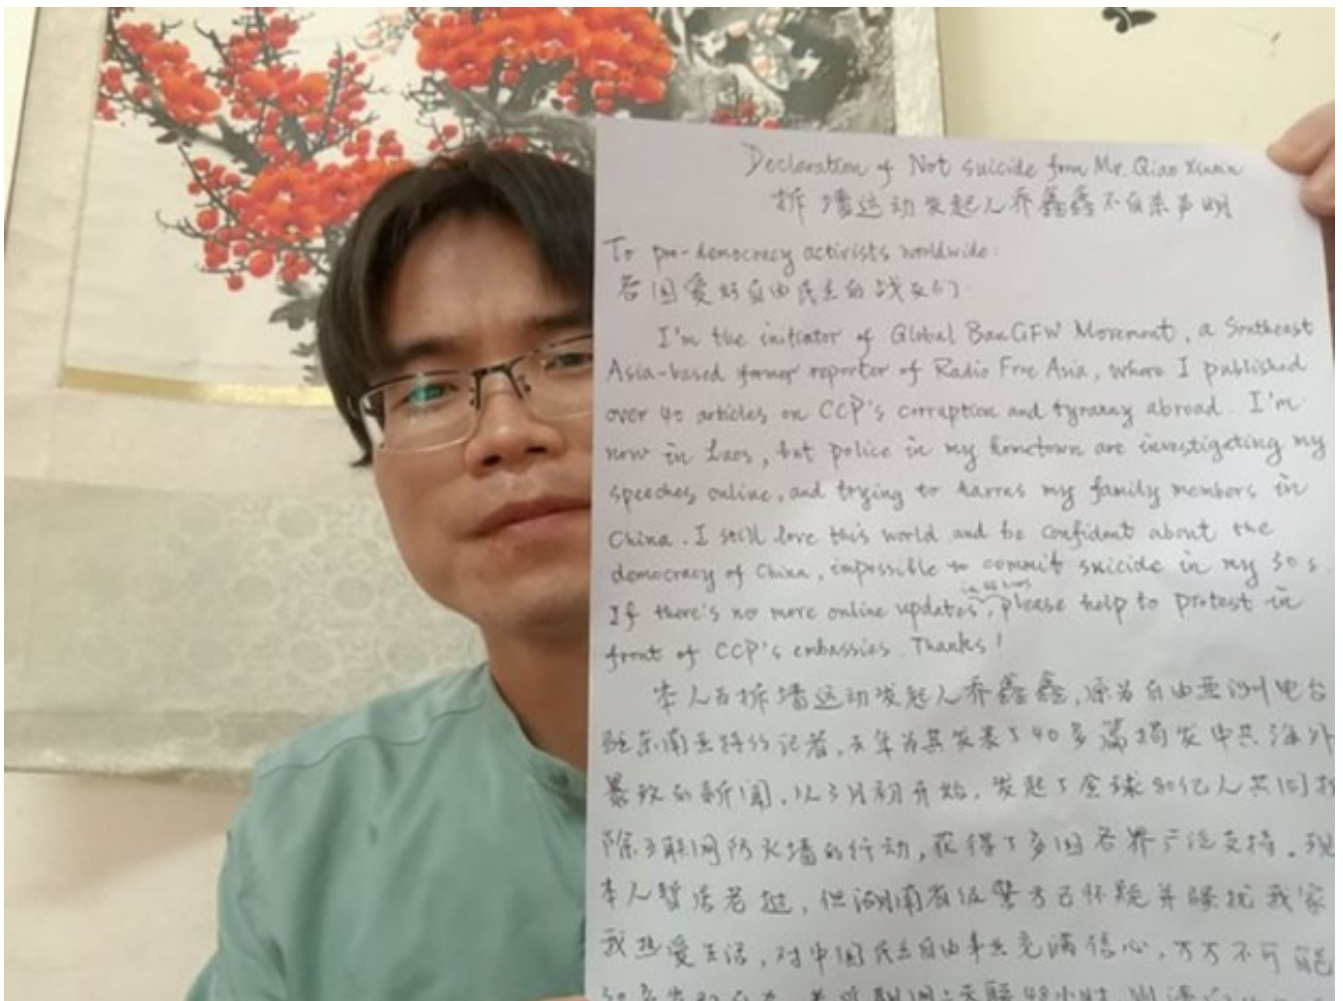 Declaration of Not suicide from Mr. Qiao Xinxin
拆墙运动发起人乔鑫鑫不自杀声明
To pro-democracy activists worldwide:
各国爱好自由民主的战友们
I'm the initiator of Global BanGFW Movement, a Southeast
Asia-based former reporter of Radio Free Asia, where I published
over 40 articles on CCP's corruption and tyranny abroad. I'm
now in Laos, but police in my hometown are investigating my
speeches online, and trying to harras my family members in
China. I still love this world and be confident about the
democracy of China, impossible to commit suicide in my 30s.
in 48 hours
If there's no more online updates, please help to protest in
front of CCP's embassies. Thanks!
本人为拆墙运动发起人乔鑫鑫,原为自由亚洲电台
驻东南亚特约记者,去年为其发表了40多篇揭发中共海外
暴政的新闻,从3月初开始,发起了全球80亿人共同拆
除互联网防火墙的行动,获得了多国各界广泛支持。现
本人暂居老挝,但湖南省级警方已怀疑并骚扰我家
我热爱生活,对中国民主自由事业充满信心,万万不可能
48小时